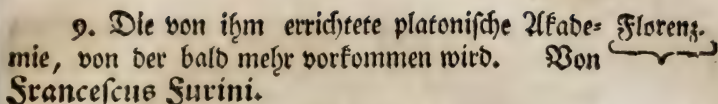 9. Die von ihm errichtete platonische Akade= Florenz.
mie, von der bald mehr vorkommen wird. Von
Francescus Furini.